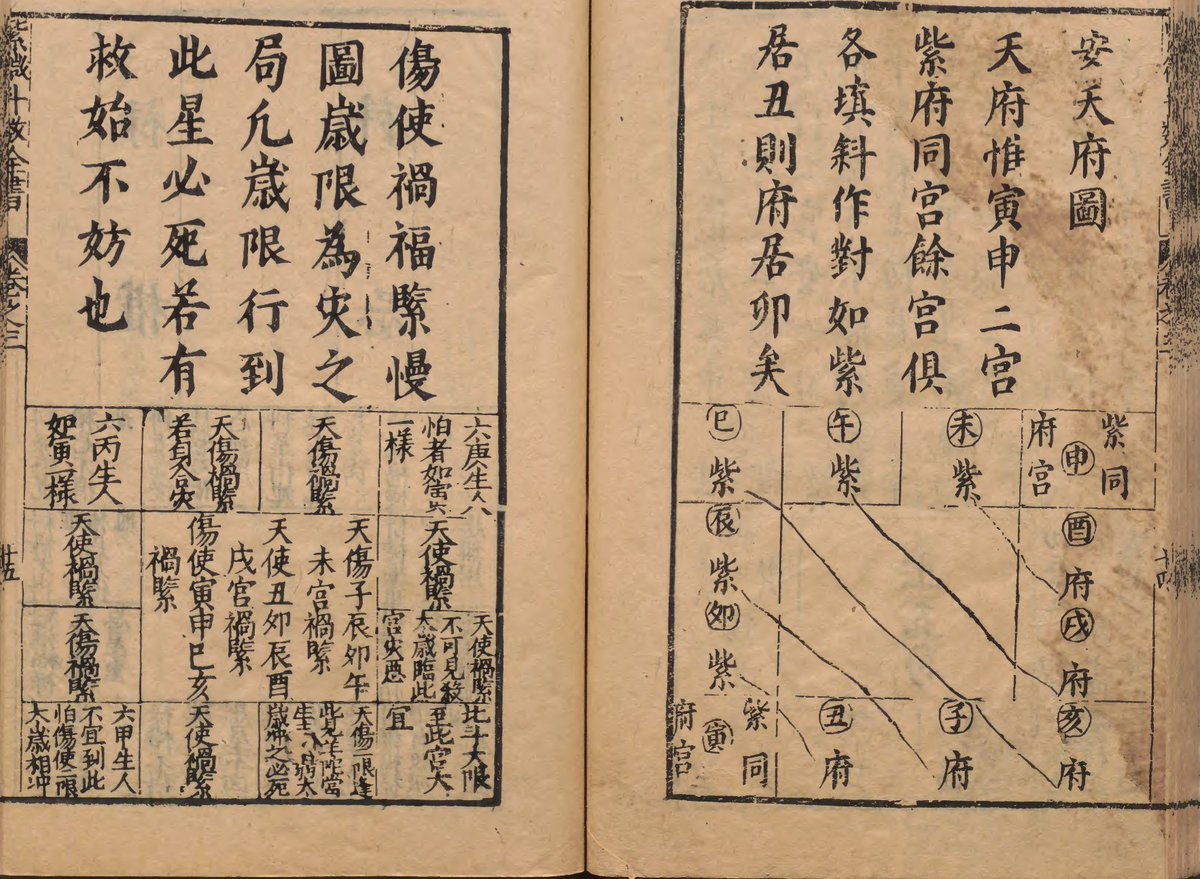 安天府圖
天府惟寅申二宮
紫府同宮餘宮俱
各填斜作對如紫
居丑則府居卯矣
巳
紫
午
紫
未
紫
紫同
申
府宮
辰
紫
酉
府
卯
紫
戌
府
紫同
寅
府宮
丑
府
子
府
亥
府
傷使禍福緊慢
圖歲限為灾之
局凡歲限行到
此星必死若有
救始不妨也
六庚生人
怕者如寅
一樣
天傷禍緊
天傷禍緊
六丙生人
如寅一樣
天使禍緊
天使禍緊
不可見殺
太歲臨此
宮灾惡
天傷子辰卯午
未宮禍緊
天使丑卯辰酉
戌宮禍緊
傷使寅申巳亥
禍緊
天使禍緊
天傷禍緊
大限
至此宮大
宜
天傷二限逢
天使禍緊
六甲生人
不宜到此
怕傷使二限
太歲相冲
紫微斗數全書
卷之三
廿五